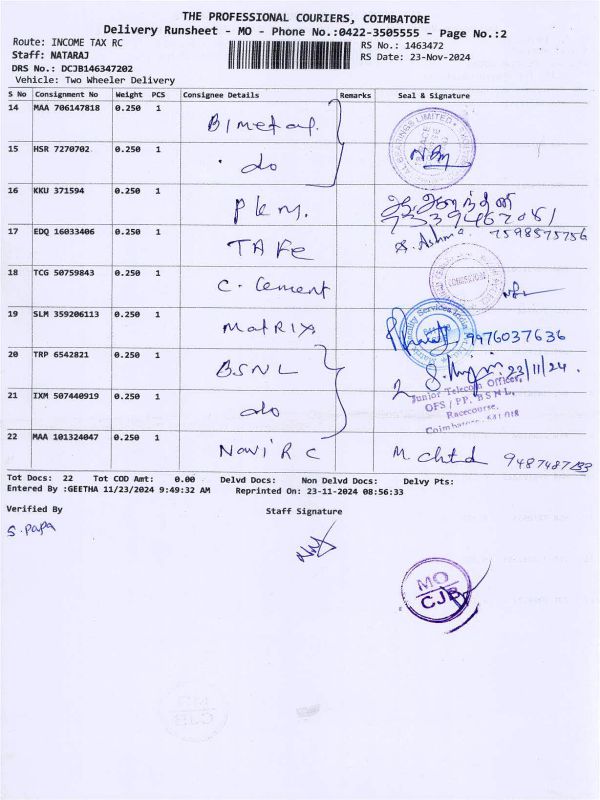 THE PROFESSIONAL COURIERS, COIMBATORE
Delivery Runsheet - MO - Phone No.:0422-3505555 - Page No.:2
Route: INCOME TAX RC
RS No.: 1463472
Staff: NATARAJ
RS Date: 23-Nov-2024
DRS No.: DCJB146347202
Vehicle: Two Wheeler Delivery
S No Consignment No Weight PCS Consignee Details Remarks Seal & Signature
14 MAA 706147818 0.250 1 Bimetal
15 HSR 7270702 0.250 1 do
16 KKU 371594 0.250 1 PKM.
17 EDQ 16033406 0.250 1 TAFE S. Ashma 7598575756
18 TCG 50759843 0.250 1 C. Cement
19 SLM 359206113 0.250 1 MatRIX 9976037636
20 TRP 6542821 0.250 1 BSNL 23/11/24.
Junior Telecom Officer,
OFS / PP, B S N L,
21 IXM 507440919 0.250 1 do Racecourse,
Coimbatore - 641 018
22 MAA 101324047 0.250 1 Navi R C
Tot Docs: 22 Tot COD Amt: 0.00 Delvd Docs: Non Delvd Docs: Delvy Pts:
Entered By :GEETHA 11/23/2024 9:49:32 AM Reprinted On: 23-11-2024 08:56:33
Verified By Staff Signature
S. Papa
MO
CJB